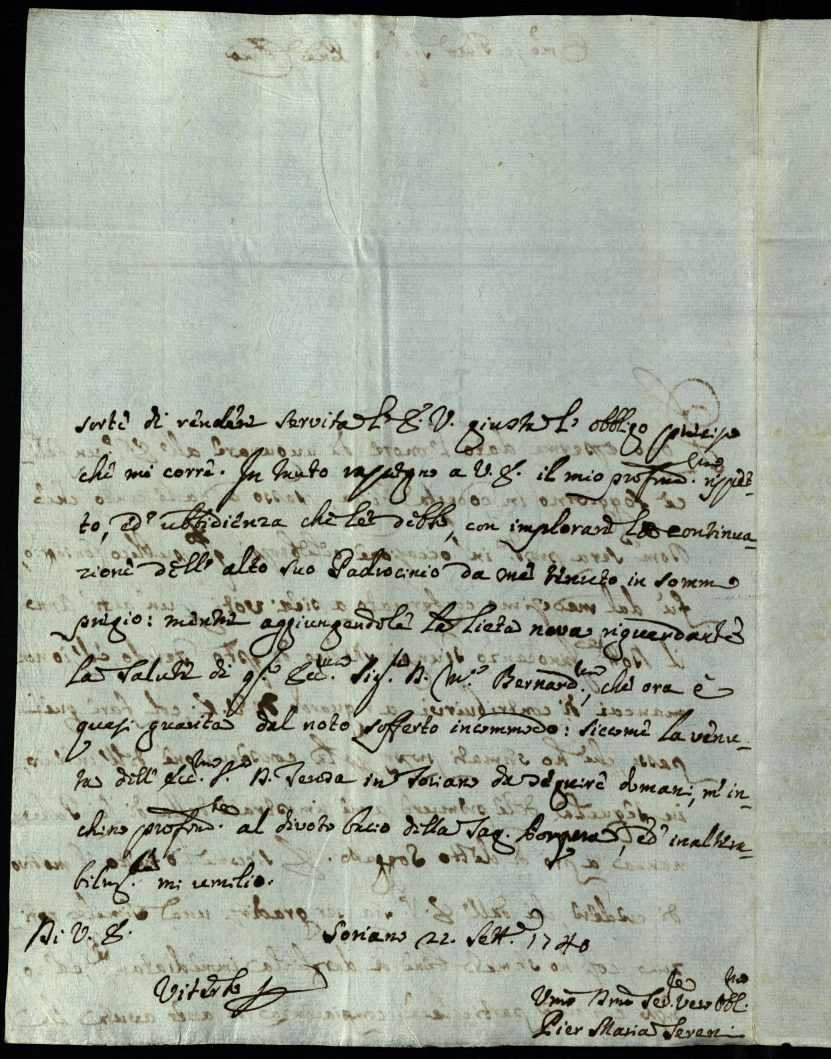 sorte di rendere servita l' E. V. giusta l' obbligo precipo
che mi corre. In tanto rassegno a V. E. il mio profond.mo rispet-
to, ed ubbidienza che le debbo, con implorare la continua-
zione dell' alto suo Padrocinio da me tenuto in sommo
pregio: mentre aggiungendole la lieta nova riguardante
la salute di q.sta Ecc.ma Sig.ra D. M.a Bernard.na, che ora è
quasi guarita dal noto sofferto incommodo: siccome la venu-
ta dell' Ecc.ma S.a D. in Soriano da seguire domani, m' in-
chino profond.te al divoto bacio della Sag. Porpora, ed inaltera-
bilm.te mi umilio.
Di V. E.
Soriano 22. Sett.e 1740
Viterbo
Umo Dmo Ser.re Vero Obbl.mo
Pier Maria Sereni